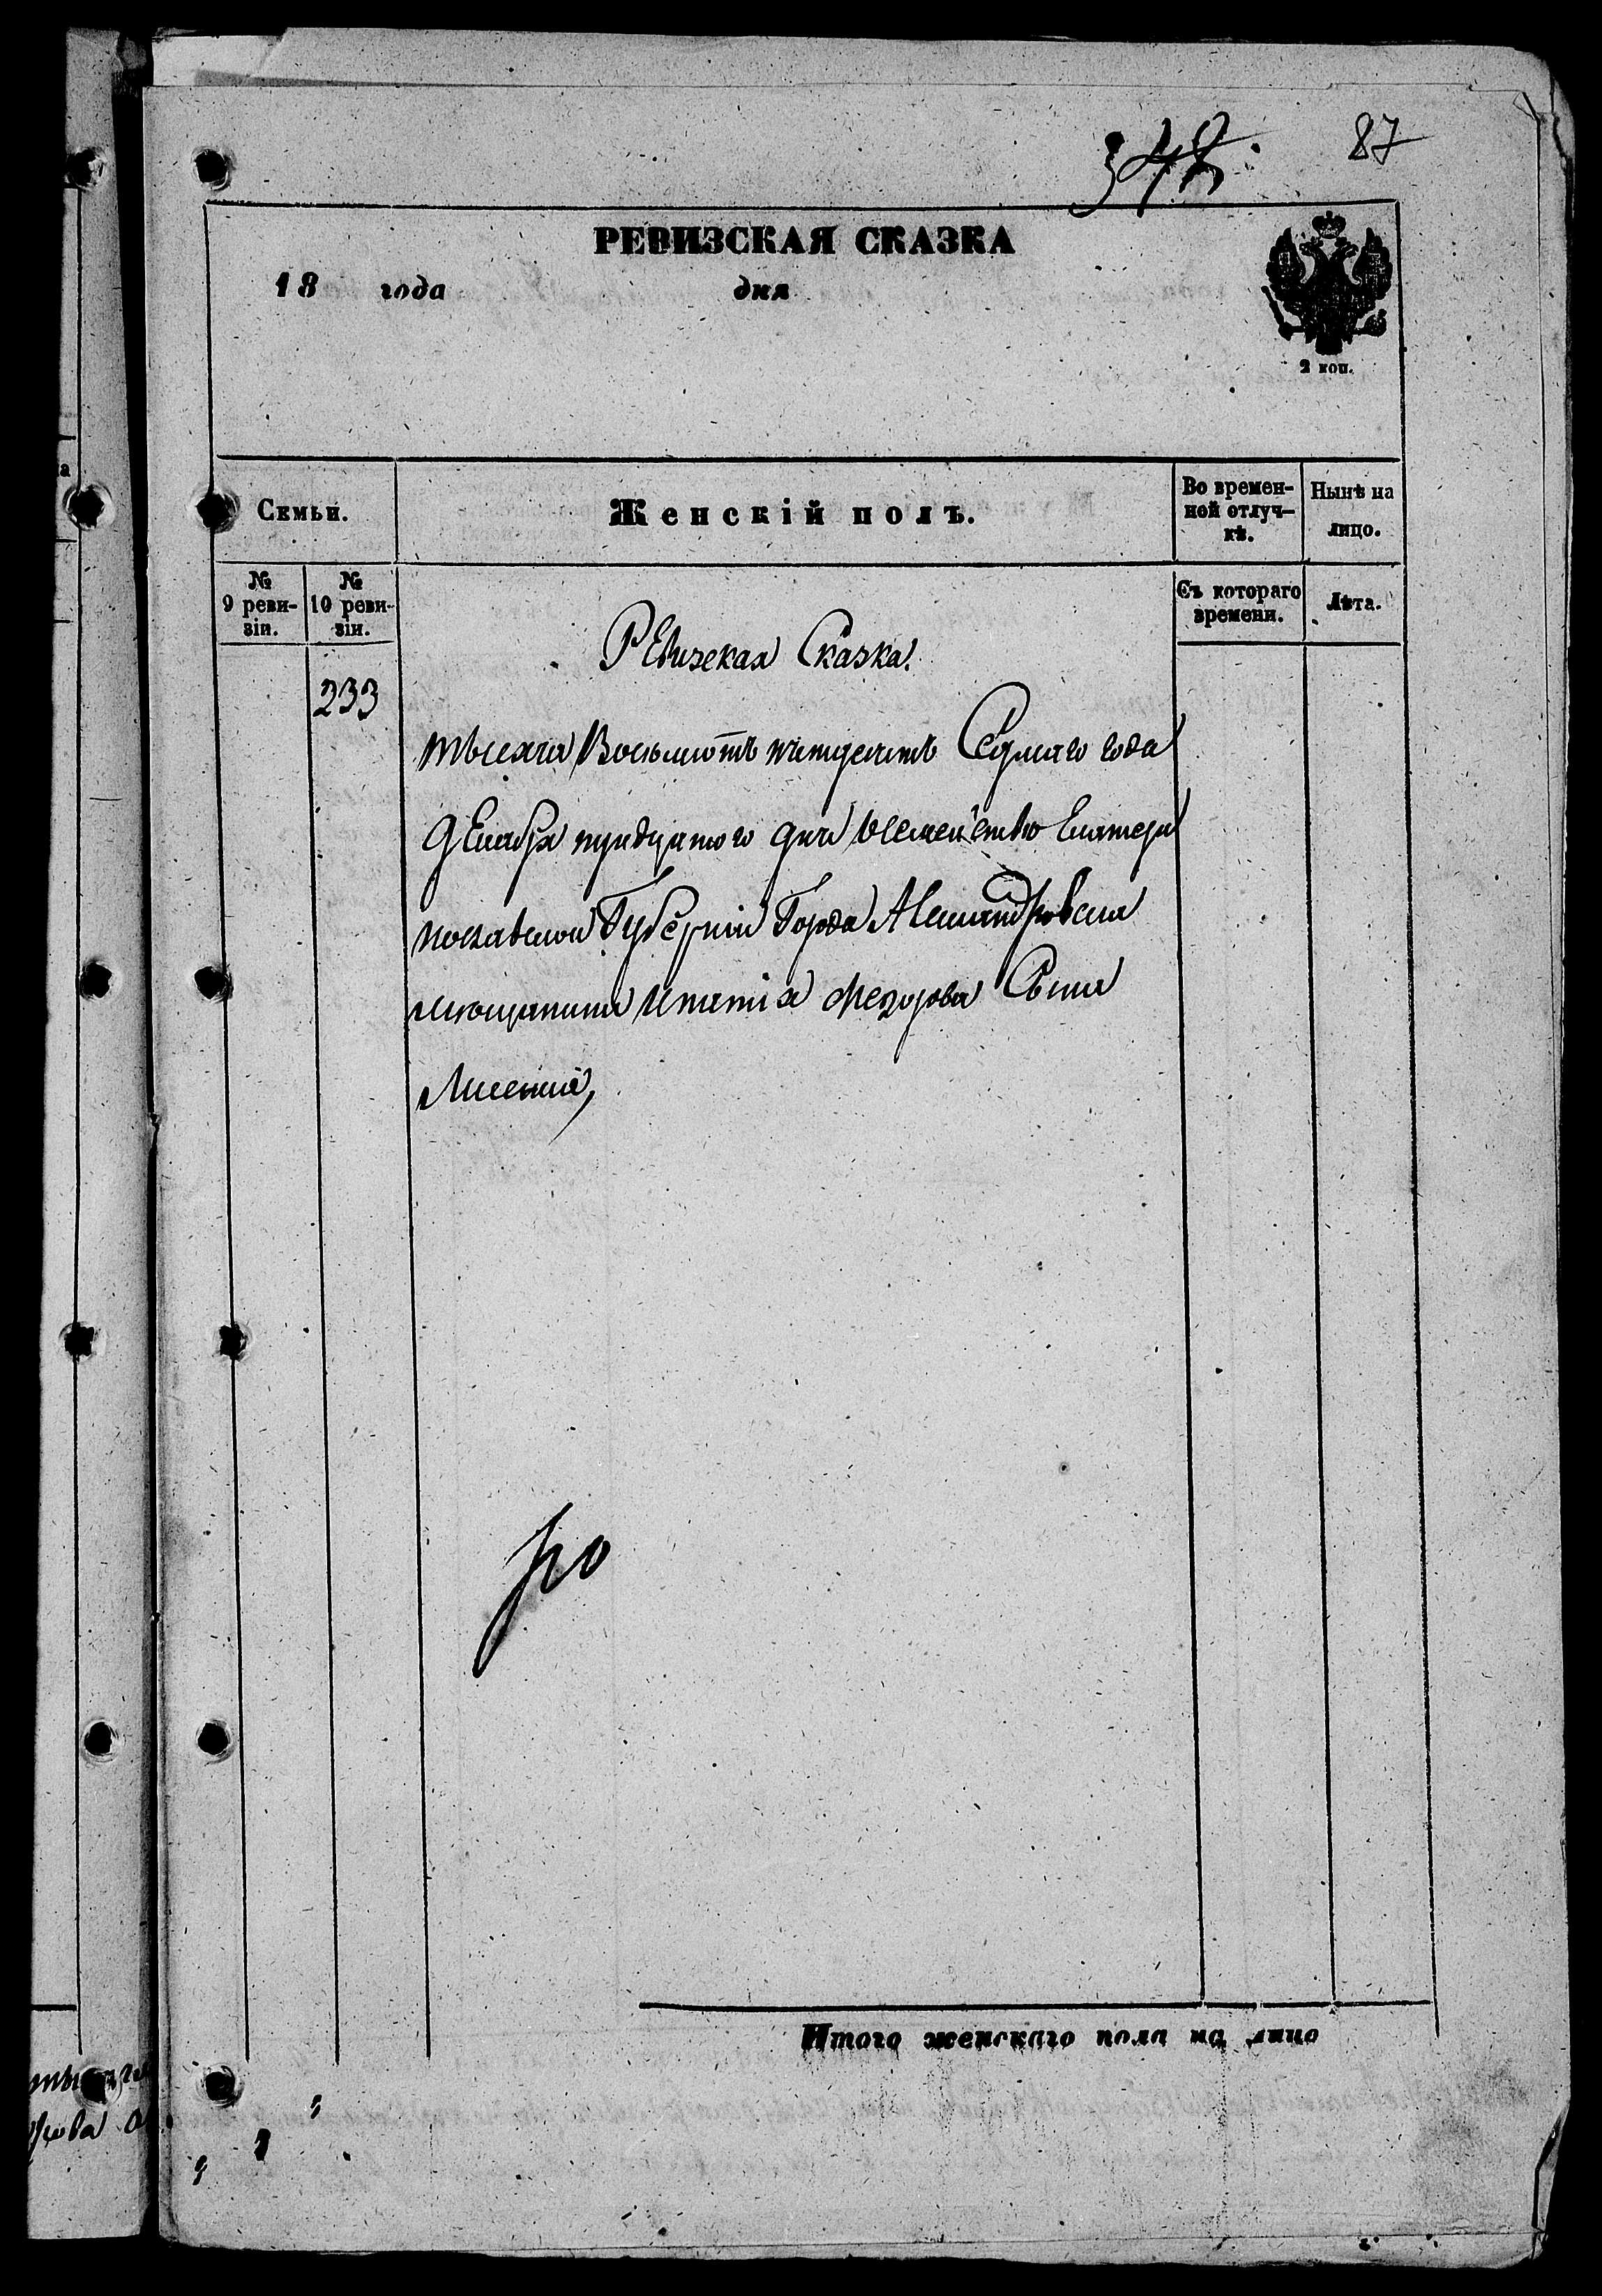 87
РЕВИЗСКАЯ СКАЗКА
18 года дня
2 коп.
Семьи.
Женскій полъ.
Во времен-
ной отлуч-
кѣ.
Нынѣ на
лицо.
№
9 реви-
зіи.
№
10 реви-
зіи.
Съ котораго
времени.
Лѣта.
Ревизская Сказка.
233
тысяча Восьмсотъ пятдесятъ Седмаго года
Декабря тридцятого дня Семейство Екатери
нославской Губерніи Города Александровска
мющанина Ипатія Федорова Сына
Лисенка,
Итого женскаго пола на лицо